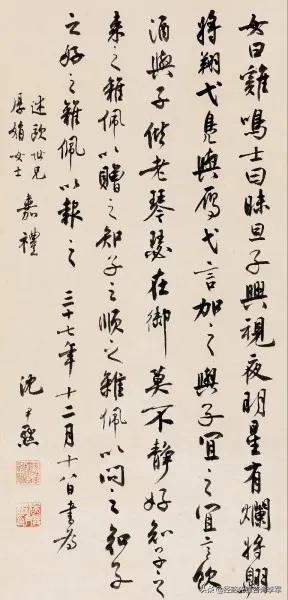 女曰雞鳴士曰昧旦子興視夜明星有爛將翱
將翔弋鳧與鴈弋言加之與子宜之宜言飲
酒與子偕老琴瑟在御莫不靜好知子之
來之雜佩以贈之知子之順之雜佩以問之知子
之好之雜佩以報之 三十七年十二月十八日書為
述歐世兄
厚娟女士
嘉禮
沈尹默